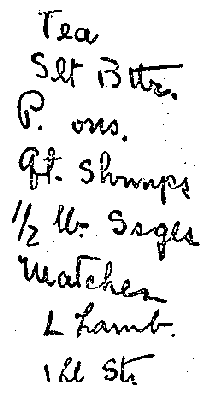 Tea
Slt Bttr.
P. ons.
Qt. Shrmps
1/2 lb. Ssges
Matches
L Lamb.
1 lb Stk